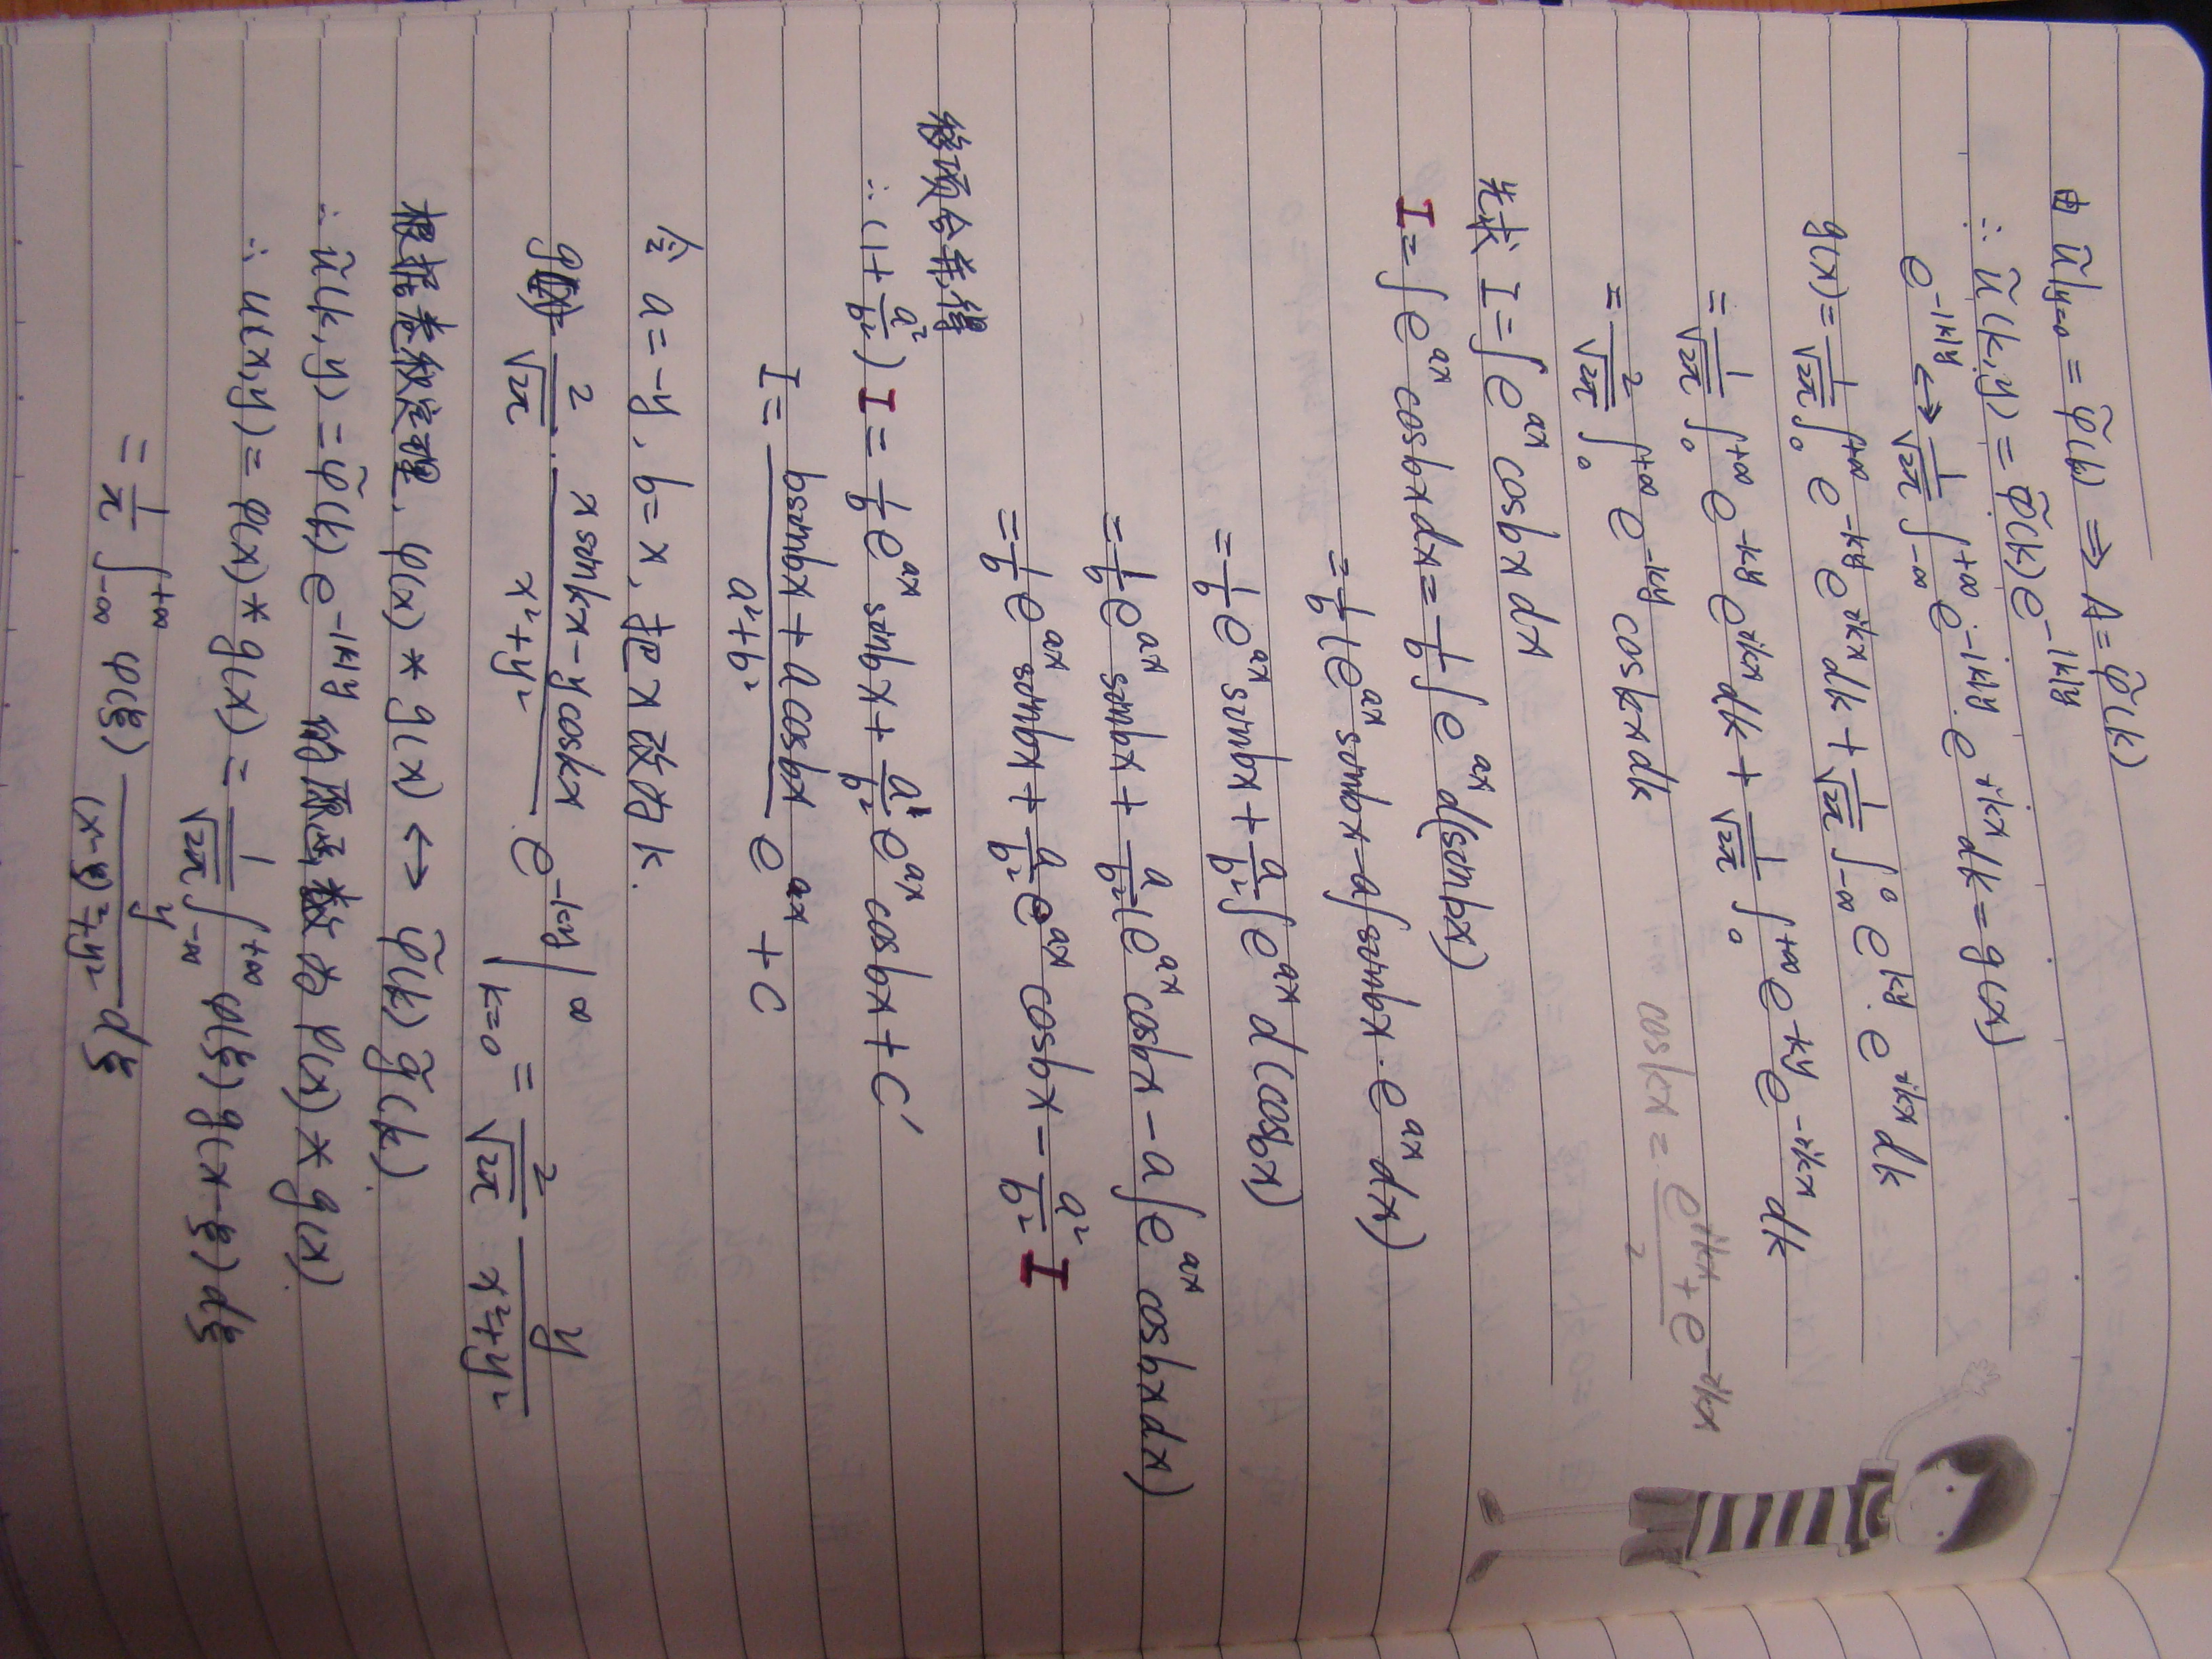 由 ũ|y=0 = φ̃(k) ⇒ A = φ̃(k)
∴ ũ(k,y) = φ̃(k)e^{-|k|y}
e^{-|k|y} ↔ \frac{1}{\sqrt{2π}} ∫_{-∞}^{+∞} e^{-|k|y} · e^{ikx} dk = g(x)
g(x) = \frac{1}{\sqrt{2π}} ∫_0^{+∞} e^{-ky} e^{ikx} dk + \frac{1}{\sqrt{2π}} ∫_{-∞}^0 e^{ky} · e^{ikx} dk
= \frac{1}{\sqrt{2π}} ∫_0^{+∞} e^{-ky} e^{ikx} dk + \frac{1}{\sqrt{2π}} ∫_0^{+∞} e^{-ky} e^{-ikx} dk
= \frac{2}{\sqrt{2π}} ∫_0^{+∞} e^{-ky} cos kx dk
cos kx = \frac{e^{ikx} + e^{-ikx}}{2}
先求 I = ∫ e^{ax} cos bx dx
I = ∫ e^{ax} cos bx dx = \frac{1}{b} ∫ e^{ax} d(sin bx)
= \frac{1}{b} (e^{ax} sin bx - a∫ sin bx · e^{ax} dx)
= \frac{1}{b} e^{ax} sin bx + \frac{a}{b²} ∫ e^{ax} d(cos bx)
= \frac{1}{b} e^{ax} sin bx + \frac{a}{b²} (e^{ax} cos bx - a∫ e^{ax} cos bx dx)
= \frac{1}{b} e^{ax} sin bx + \frac{a}{b²} e^{ax} cos bx - \frac{a²}{b²} I
移项合并得
∴ (1 + \frac{a²}{b²}) I = \frac{1}{b} e^{ax} sin bx + \frac{a}{b²} e^{ax} cos bx + C'
I = \frac{b sin bx + a cos bx}{a² + b²} e^{ax} + C
令 a = -y, b = x, 把 x 改为 k.
g(x) = \frac{2}{\sqrt{2π}} · \frac{x sin kx - y cos kx}{x² + y²} e^{-ky} |_{k=0}^{∞} = \frac{2}{\sqrt{2π}} \frac{y}{x² + y²}
根据卷积定理, φ(x) * g(x) ↔ φ̃(k) g̃(k).
∴ ũ(k,y) = φ̃(k) e^{-|k|y} 的原函数为 φ(x) * g(x)
∴ u(x,y) = φ(x) * g(x) = \frac{1}{\sqrt{2π}} ∫_{-∞}^{+∞} φ(ξ) g(x-ξ) dξ
= \frac{1}{π} ∫_{-∞}^{+∞} φ(ξ) \frac{y}{(x-ξ)² + y²} dξ